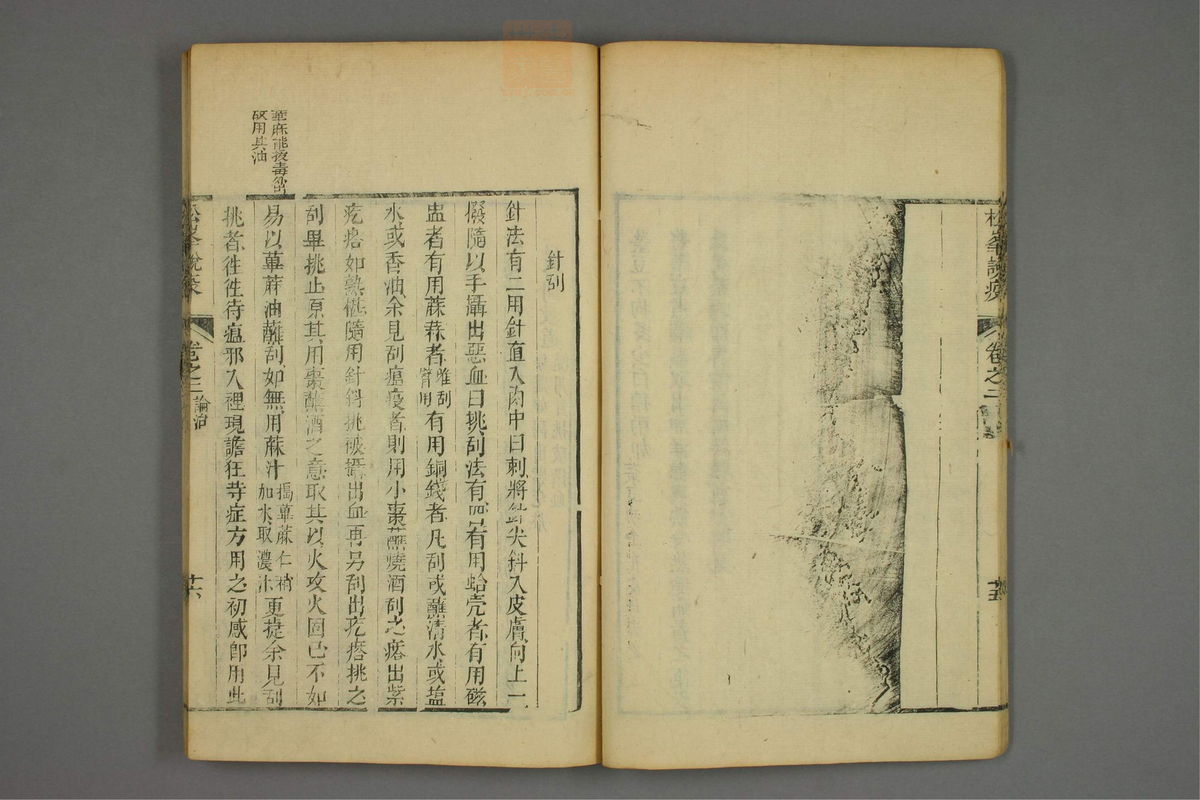 松峯說疫
卷之二
廿五
針刮
針法有二用針直入肉中曰刺將針尖斜入皮膚向上一
撥隨以手攝出惡血曰挑刮法有四有用蛤壳者有用磁
盅者有用蔴蒜者惟刮臂用有用銅錢者凡刮或蘸清水或盐
水或香油余見刮瘟疫者則用小棗蘸燒酒刮之瘩出紫
疙瘩如熟椹隨用針斜挑破攝出血再另刮出疙瘩挑之
刮畢挑止原其用棗蘸酒之意取其以火攻火固已不如
易以萆蔴油蘸刮如無用蔴汁搗萆蔴仁稍加水取濃汁更捷余見刮
挑者徃徃待瘟邪入裡現譫狂等症方用之初感卽用此
萆麻能拔毒外出
故用其油
松峯說疫
卷之二
論治
廿六